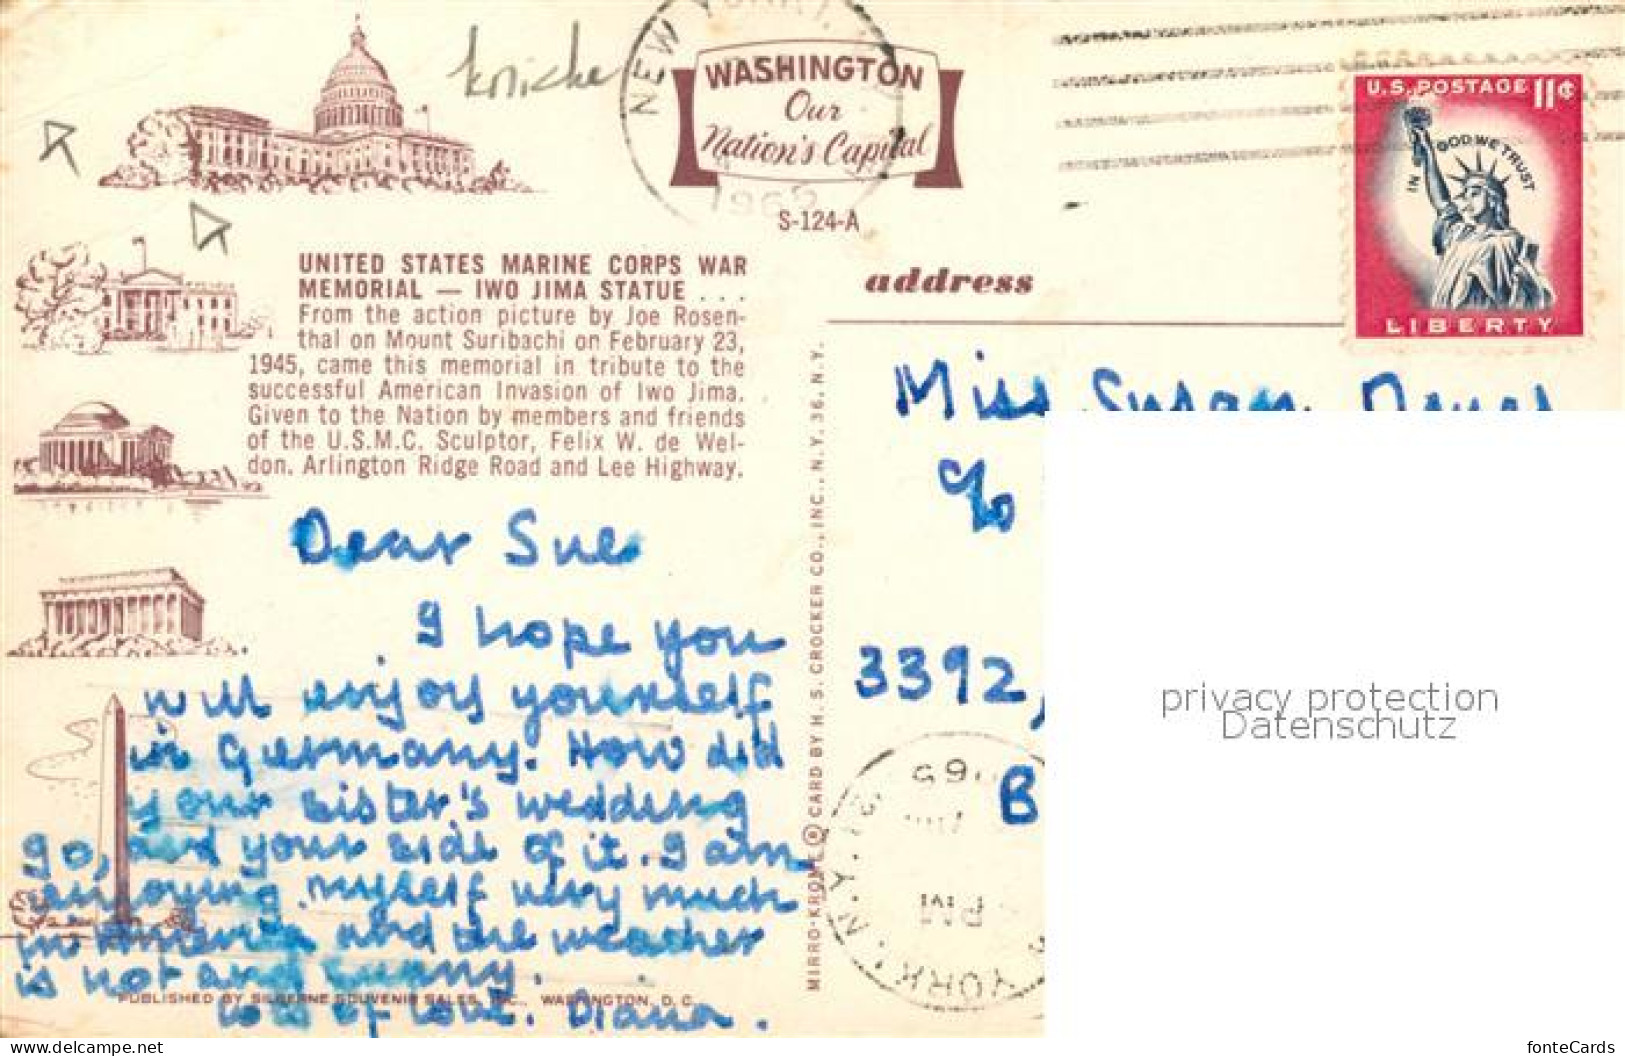 knicke
NEW YORK
1965
WASHINGTON
Our
Nation's Capital
S-124-A
U.S. POSTAGE 11¢
IN GOD WE TRUST
LIBERTY
UNITED STATES MARINE CORPS WAR
MEMORIAL — IWO JIMA STATUE . . .
From the action picture by Joe Rosen-
thal on Mount Suribachi on February 23,
1945, came this memorial in tribute to the
successful American Invasion of Iwo Jima.
Given to the Nation by members and friends
of the U.S.M.C. Sculptor, Felix W. de Wel-
don. Arlington Ridge Road and Lee Highway.
address
Dear Sue
I hope you
will enjoy yourself
in Germany. How did
your sister's wedding
go, and your side of it. I am
enjoying myself very much
in America and the weather
is hot and sunny.
lots of love. Diana.
PUBLISHED BY SILBERNE SOUVENIR SALES, INC., WASHINGTON, D. C.
MIRRO-KROME ® CARD BY H. S. CROCKER CO., INC., N.Y. 36, N.Y.
Miss Susan
c/o
3392,
B
YORK, N.Y.
PM
privacy protection
Datenschutz
www.delcampe.net
fonteCards